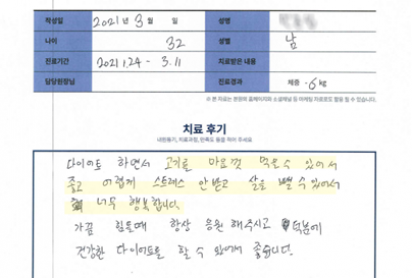 작성일 2021년 3월 일 성명
나이 32 성별 남
진료기간 2021.1.24 - 3.11 치료받은 내용
담당원장님 진료결과 체중 -6kg
※ 본 자료는 본원의 홈페이지와 소셜채널 등 마케팅 자료로도 활용 될 수 있습니다.
치료 후기
내원동기, 치료과정, 만족도 등을 적어 주세요
다이어트 하면서 고기를 마음껏 먹을수 있어서
좋고 어렵게 스트레스 안받고 살을 뺄 수 있어서
너무 행복합니다.
가끔 힘들때 항상 응원 해주시고 덕분에
건강한 다이어트를 할 수 있어서 좋습니다.